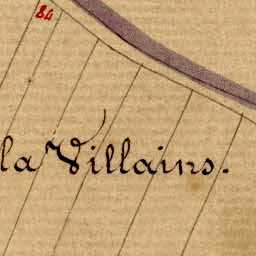 84
la Villains.